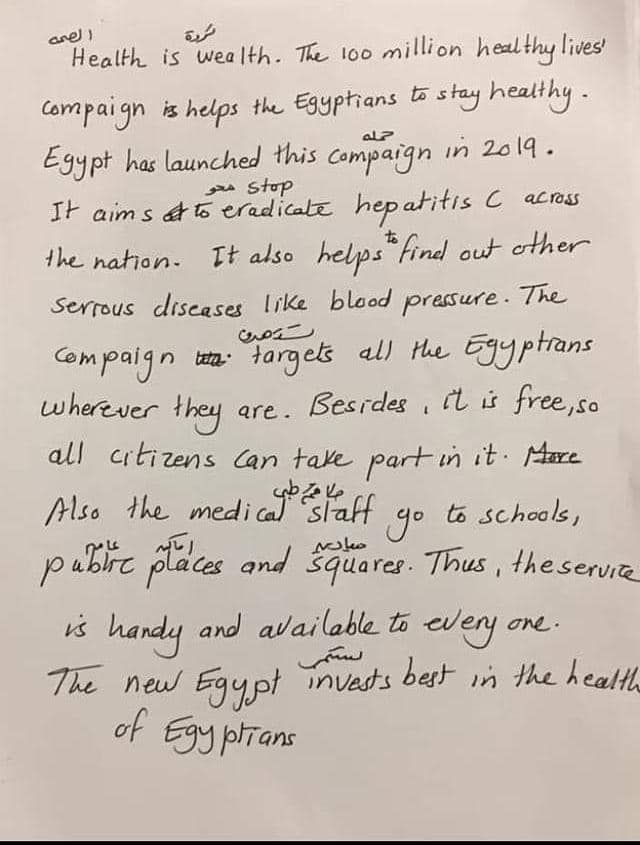 الصحة ثروة
Health is wealth. The 100 million healthy lives'
Compaign is helps the Egyptians to stay healthy.
حمله
Egypt has launched this Compaign in 2019.
محو stop
It aims to eradicate hepatitis C across
to
the nation. It also helps find out other
serious diseases like blood pressure. The
تستهدف
Compaign targets all the Egyptians
wherever they are. Besides, it is free, so
all citizens can take part in it. More
طبي
Also the medical staff go to schools,
عامة أماكن ميادين
public places and squares. Thus, the service
is handy and available to every one.
تستثمر
The new Egypt invests best in the health
of Egyptians